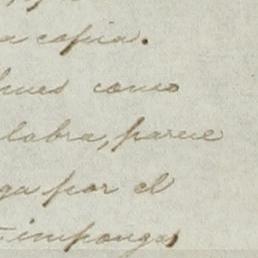 a copia.
hues como
labra, parece
ga por el
imponga